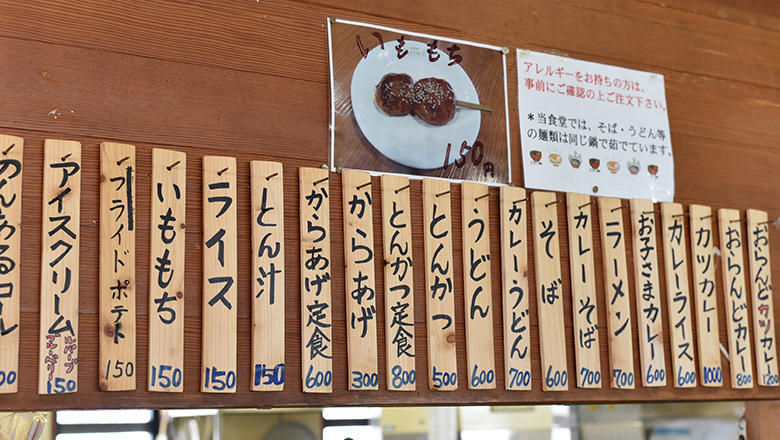 いももち
150円
アレルギーをお持ちの方は、
事前にご確認の上ご注文下さい。
＊当食堂では、そば・うどん等
の麺類は同じ鍋で茹でています。
のんあるコール
00
アイスクリーム
ルバーブ
ブルーベリー
150
フライドポテト
150
いももち
150
ライス
150
とん汁
150
からあげ定食
600
からあげ
300
とんかつ定食
800
とんかつ
500
うどん
600
カレーうどん
700
そば
600
カレーそば
700
ラーメン
700
お子さまカレー
600
カレーライス
600
カツカレー
1000
おらんどカレー
800
おらんどカツカレー
1200